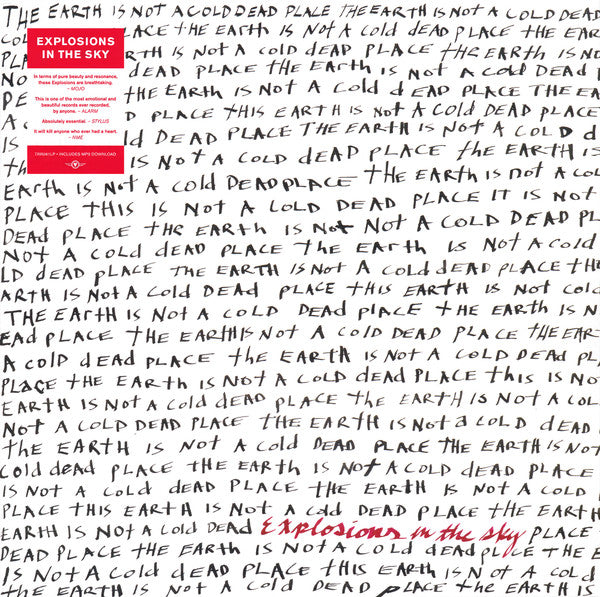 THE EARTH IS NOT A COLD DEAD PLACE THE EARTH IS NOT A COLD DEAD
EXPLOSIONS
IN THE SKY
In terms of pure beauty and resonance,
these Explosions are breathtaking.
– MOJO
This is one of the most emotional and
beautiful records ever recorded,
by anyone. – ALARM
Absolutely essential. – STYLUS
It will kill anyone who ever had a heart.
– RIME
TRR061LP • INCLUDES MP3 DOWNLOAD
COL ACE tHE EARTH IS NOT A COLD DEAD PLACE tHE EAR
IS IS NOT A COLD dEAD PLACE tHE EARTH IS NO
NO DEAD PLACE tHE EARTH IS NOT A COLD DEAD
DE tHE EARTH IS NOT A COLD DEAD PLACE tHE
A C D PLACE tHIS EARTH IS NOT A COLD DEAD PLACE
IS LD DEAD PLACE THE EARTH IS NOT A COLD d
th IS NOT A COLD dEAD PLACE tHE EARTH IS
EARth IS NOt A COld DEAD PLACE tHE EARTH IS NOt A COLD
PLACE THIS IS NOt A COLD DEAD PLACE It IS NOT
DEAd PLACE tHE EARTH IS NOt NOt A COLD DEAD PL
NOT A COLD DEAD PLACE tHE EARTH IS NOt A COld
LD DEAD PLACE THE EARTH IS NOT A COLD dEAD PLACE tH
ARTH IS NOt A Cold DEAD PLACE tHIS EARTH IS NOt COld
THE EARTH IS NOt A COLD DEAD PlACE tHE EARTH IS NOT
EAd PLACE THE EARTH IS NOT A COLD DEAD PLACE tHE EAR
A COld dEAD PLACE tHE EARTH IS NOT A COLD DEAd PL
PLACE tHE EARTH IS NOt A COLD DEAD PLACE tHIS IS NO
EARTH IS NOT A COLD DEAD PLACE tHE EARTH IS NOT A COLD
NOt A COLD DEAD PLACE THE EARTH IS NOT A COLD DEAD
tHE EARTH IS NOT A COld DEAD PLACE tHE EARTH IS NOT
COld dEAd PLACE THE EARTH IS NOT A COLD DEAD PLACE
IS NOT A COLD dEAD PLACE tHE EARTH IS NOT A COLD
PLACE tHIS EARTH IS NOT A COld DEAD PLACE tHE EARTH
EARTH IS NOT A COLD DEAD Explosions in the sky PLACE
DEAD PLACE tHE EARTH IS NOT A COLD dEAd PLACE tHE E
IS NOt A COLD DEAD PLACE tHIS EARTH IS NOT A COLD
tHE EARTH IS NOT A COLD DEAD PLACE tHE EARTH IS